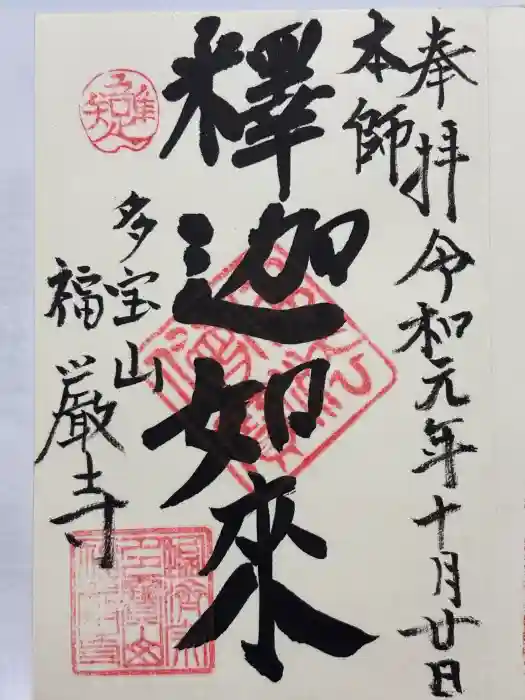 奉拝 令和元年十月廿日
本師
釋迦如來
多宝山
福厳寺
吾唯足知